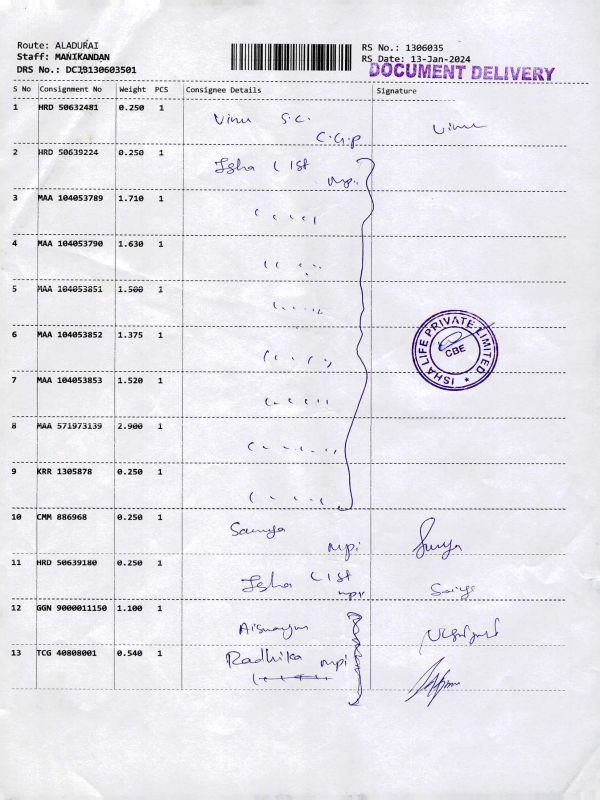 Route: ALADURAI
Staff: MANIKANDAN
DRS No.: DCJB130603501
RS No.: 1306035
RS Date: 13-Jan-2024
DOCUMENT DELIVERY
S No Consignment No Weight PCS Consignee Details Signature
1 HRD 50632481 0.250 1 Vinu S.C. Vinu
C.G.P
2 HRD 50639224 0.250 1 Isha
mpi
3 MAA 104053789 1.710 1
4 MAA 104053790 1.630 1
5 MAA 104053851 1.500 1
6 MAA 104053852 1.375 1
ISHA LIFE PRIVATE LIMITED
CBE
7 MAA 104053853 1.520 1
8 MAA 571973139 2.900 1
9 KRR 1305878 0.250 1
10 CMM 886968 0.250 1
mpi
11 HRD 50639180 0.250 1 Isha
12 GGN 9000011150 1.100 1
13 TCG 40808001 0.540 1 Radhika mpi